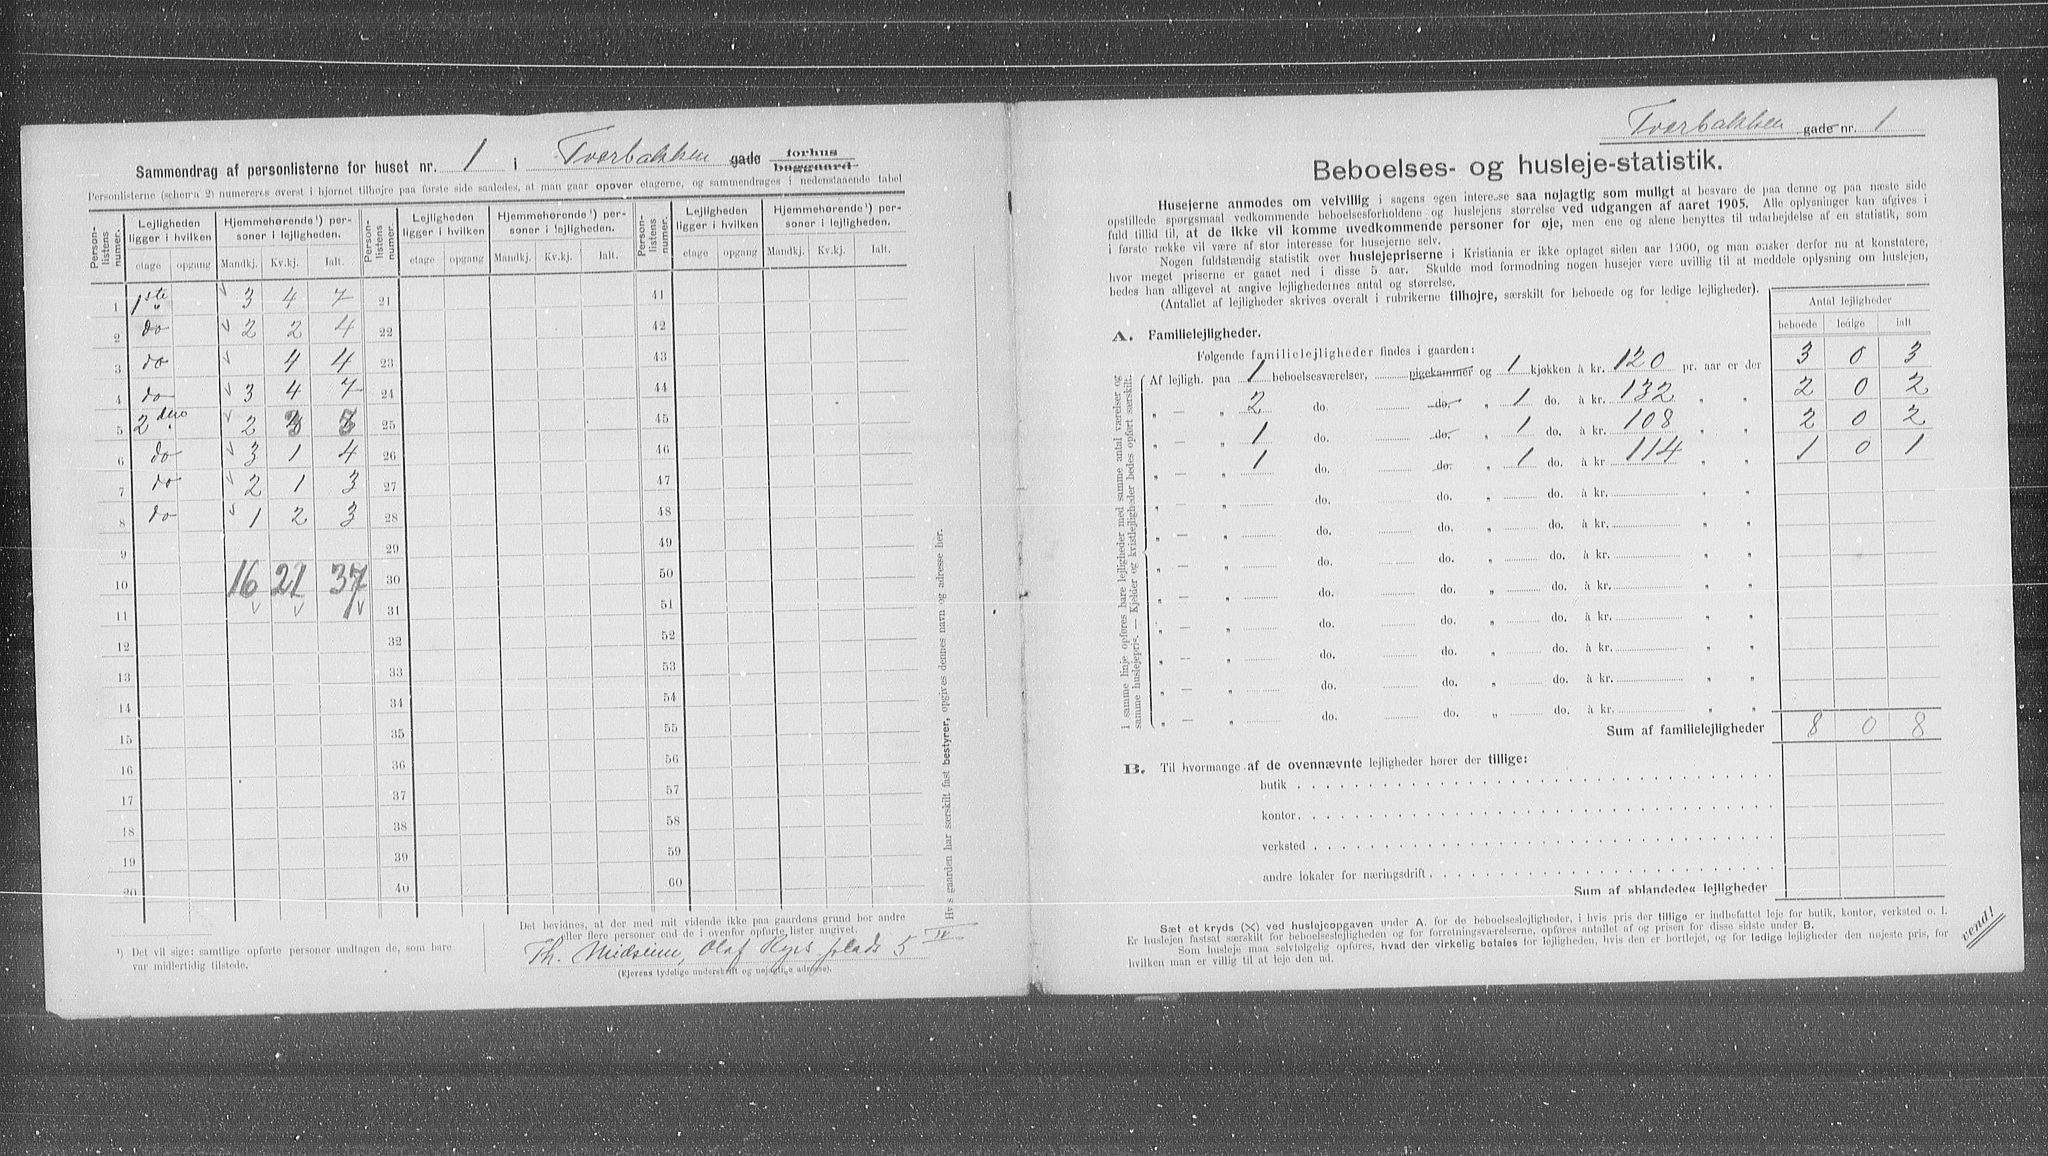 Sammendrag af personlisterne for huset nr. 1 i Tværbakken gade forhus baggaard
Personlisterne (schema 2) numereres øverst i hjørnet tilhøjre paa første side saaledes, at man gaar opover etagerne, og sammendrages i nedenstaaende tabel
Person-listens numer. Lejligheden ligger i hvilken Hjemmehørende¹) personer i lejligheden. Person-listens numer. Lejligheden ligger i hvilken Hjemmehørende¹) personer i lejligheden. Person-listens numer. Lejligheden ligger i hvilken Hjemmehørende¹) personer i lejligheden.
etage opgang Mandkj. Kv.kj. Ialt. etage opgang Mandkj. Kv.kj. Ialt. etage opgang Mandkj. Kv.kj. Ialt.
1 1ste 3 4 7 21 41
2 do 2 2 4 22 42
3 do 4 4 23 43
4 do 3 4 7 24 44
5 2den 2 3 5 25 45
6 do 3 1 4 26 46
7 do 2 1 3 27 47
8 do 1 2 3 28 48
9 29 49
10 16 21 37 30 50
11 31 51
12 32 52
13 33 53
14 34 54
15 35 55
16 36 56
17 37 57
18 38 58
19 39 59
20 40 60
¹) Det vil sige: samtlige opførte personer undtagen de, som bare
var midlertidig tilstede.
Det bevidnes, at der med mit vidende ikke paa gaardens grund bor andre
eller flere personer end de i ovenfor opførte lister angivet.
Th. Midseim, Olaf Ryes plads 5 IV
(Ejerens tydelige underskrift og nøjagtige adresse).
Hvis gaarden har særskilt fast bestyrer, opgives dennes navn og adresse her.
Tværbakken gade nr. 1
Beboelses- og husleje-statistik.
Husejerne anmodes om velvillig i sagens egen interesse saa nøjagtig som muligt at besvare de paa denne og paa næste side
opstillede spørgsmaal vedkommende beboelsesforholdene og huslejens størrelse ved udgangen af aaret 1905. Alle oplysninger kan afgives i
fuld tillid til, at de ikke vil komme uvedkommende personer for øje, men ene og alene benyttes til udarbejdelse af en statistik, som
i første række vil være af stor interesse for husejerne selv.
Nogen fuldstændig statistik over huslejepriserne i Kristiania er ikke optaget siden aar 1900, og man ønsker derfor nu at konstatere,
hvor meget priserne er gaaet ned i disse 5 aar. Skulde mod formodning nogen husejer være uvillig til at meddele oplysning om huslejen,
bedes han alligevel at angive lejlighedernes antal og størrelse.
(Antallet af lejligheder skrives overalt i rubrikerne tilhøjre, særskilt for beboede og for ledige lejligheder).
Antal lejligheder
beboede ledige ialt
A. Familielejligheder.
Følgende familielejligheder findes i gaarden:
Af lejligh. paa 1 beboelsesværelser, pigekammer og 1 kjøkken à kr. 120 pr. aar er der 3 0 3
„ — „ 2 do. do. „ 1 do. à kr. 132 „ „ 2 0 2
„ — „ 1 do. do. „ 1 do. à kr. 108 „ „ 2 0 2
„ — „ 1 do. do. „ 1 do. à kr. 114 „ „ 1 0 1
„ — „ do. do. „ do. à kr. „ „
„ — „ do. do. „ do. à kr. „ „
„ — „ do. do. „ do. à kr. „ „
„ — „ do. do. „ do. à kr. „ „
„ — „ do. do. „ do. à kr. „ „
„ — „ do. do. „ do. à kr. „ „
„ — „ do. do. „ do. à kr. „ „
„ — „ do. do. „ do. à kr. „ „
I samme linje opføres bare lejligheder med samme antal værelser og
samme huslejepris. — Kjelder og kvistlejligheder bedes opført særskilt.
Sum af familielejligheder 8 0 8
B. Til hvormange af de ovennævnte lejligheder hører der tillige:
butik
kontor
verksted
andre lokaler for næringsdrift
Sum af »blandede« lejligheder
Sæt et kryds (X) ved huslejeopgaven under A. for de beboelseslejligheder, i hvis pris der tillige er indbefattet leje for butik, kontor, verksted o. l.
Er huslejen fastsat særskilt for beboelseslejligheden og for forretningsværelserne, opføres antallet af og prisen for disse sidste under B.
Som husleje maa selvfølgelig opføres, hvad der virkelig betales for lejligheden, hvis den er bortlejet, og for ledige lejligheder den nøjeste pris, for
hvilken man er villig til at leje den ud.
vend!